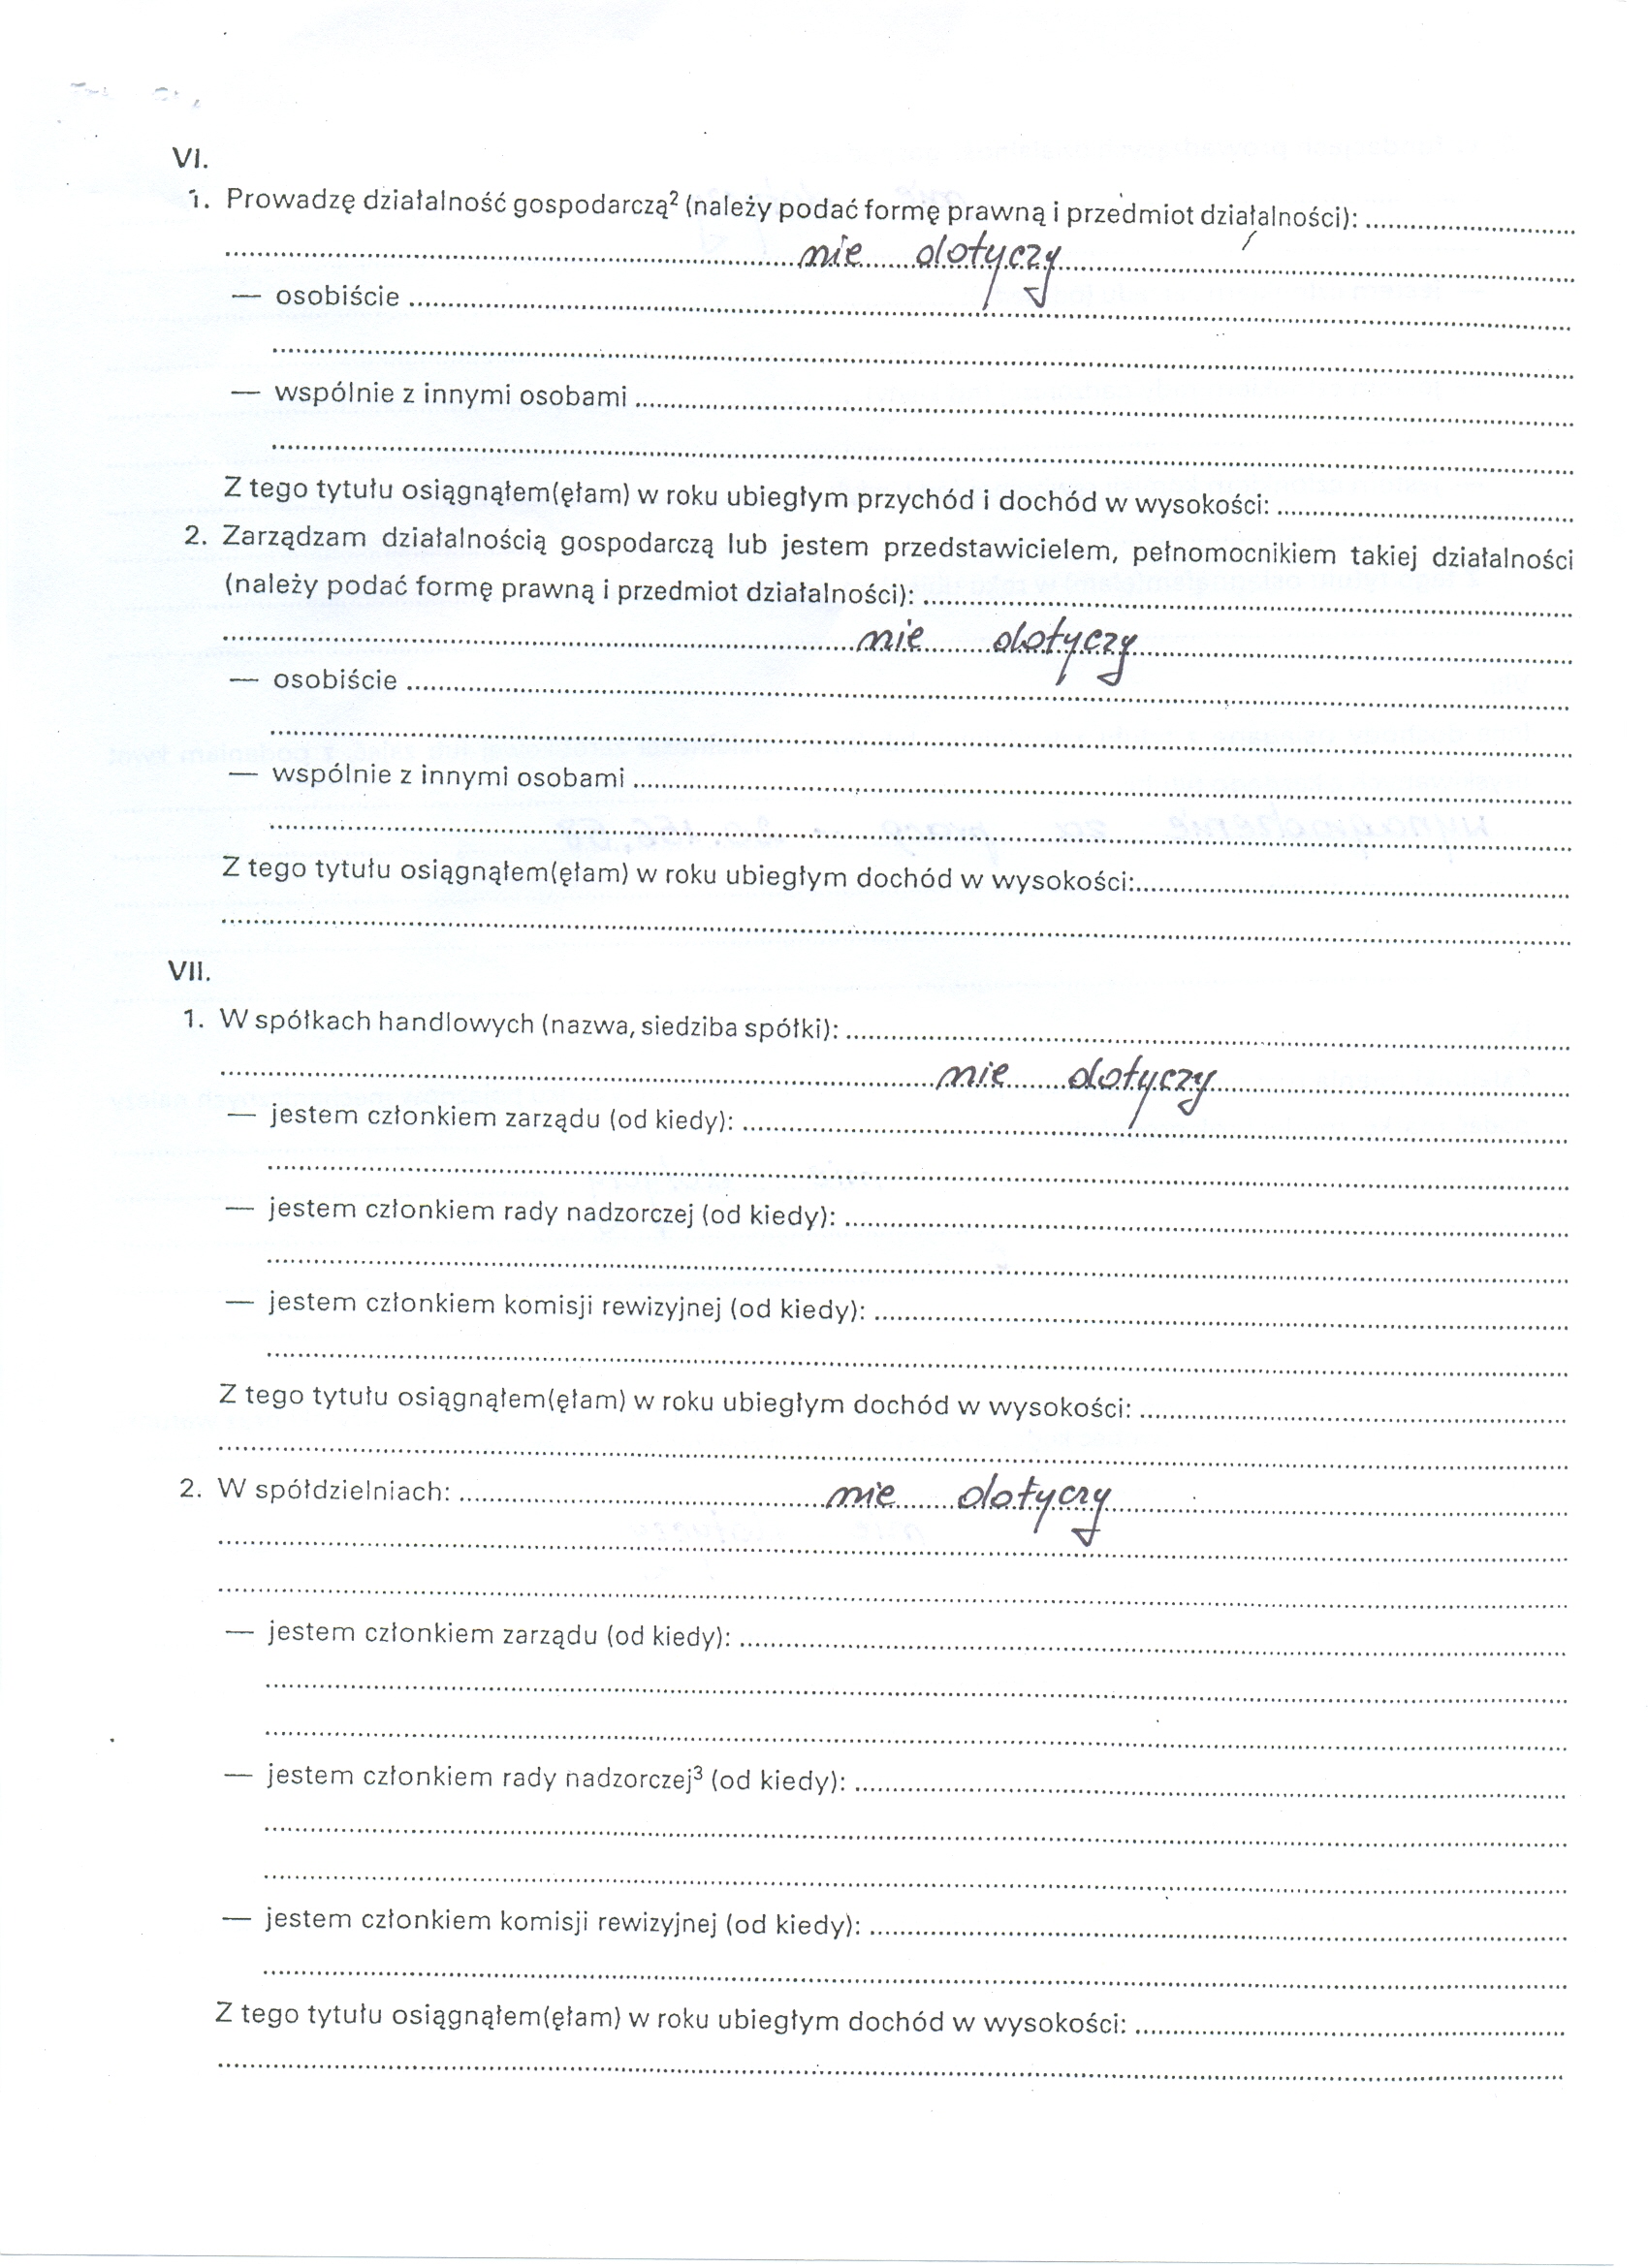 VI.
1. Prowadzę działalność gospodarczą² (należy podać formę prawną i przedmiot działalności):
nie dotyczy
— osobiście
— wspólnie z innymi osobami
Z tego tytułu osiągnąłem(ęłam) w roku ubiegłym przychód i dochód w wysokości:
2. Zarządzam działalnością gospodarczą lub jestem przedstawicielem, pełnomocnikiem takiej działalności
(należy podać formę prawną i przedmiot działalności):
nie dotyczy
— osobiście
— wspólnie z innymi osobami
Z tego tytułu osiągnąłem(ęłam) w roku ubiegłym dochód w wysokości:
VII.
1. W spółkach handlowych (nazwa, siedziba spółki):
nie dotyczy
— jestem członkiem zarządu (od kiedy):
— jestem członkiem rady nadzorczej (od kiedy):
— jestem członkiem komisji rewizyjnej (od kiedy):
Z tego tytułu osiągnąłem(ęłam) w roku ubiegłym dochód w wysokości:
2. W spółdzielniach: nie dotyczy
— jestem członkiem zarządu (od kiedy):
— jestem członkiem rady nadzorczej³ (od kiedy):
— jestem członkiem komisji rewizyjnej (od kiedy):
Z tego tytułu osiągnąłem(ęłam) w roku ubiegłym dochód w wysokości: